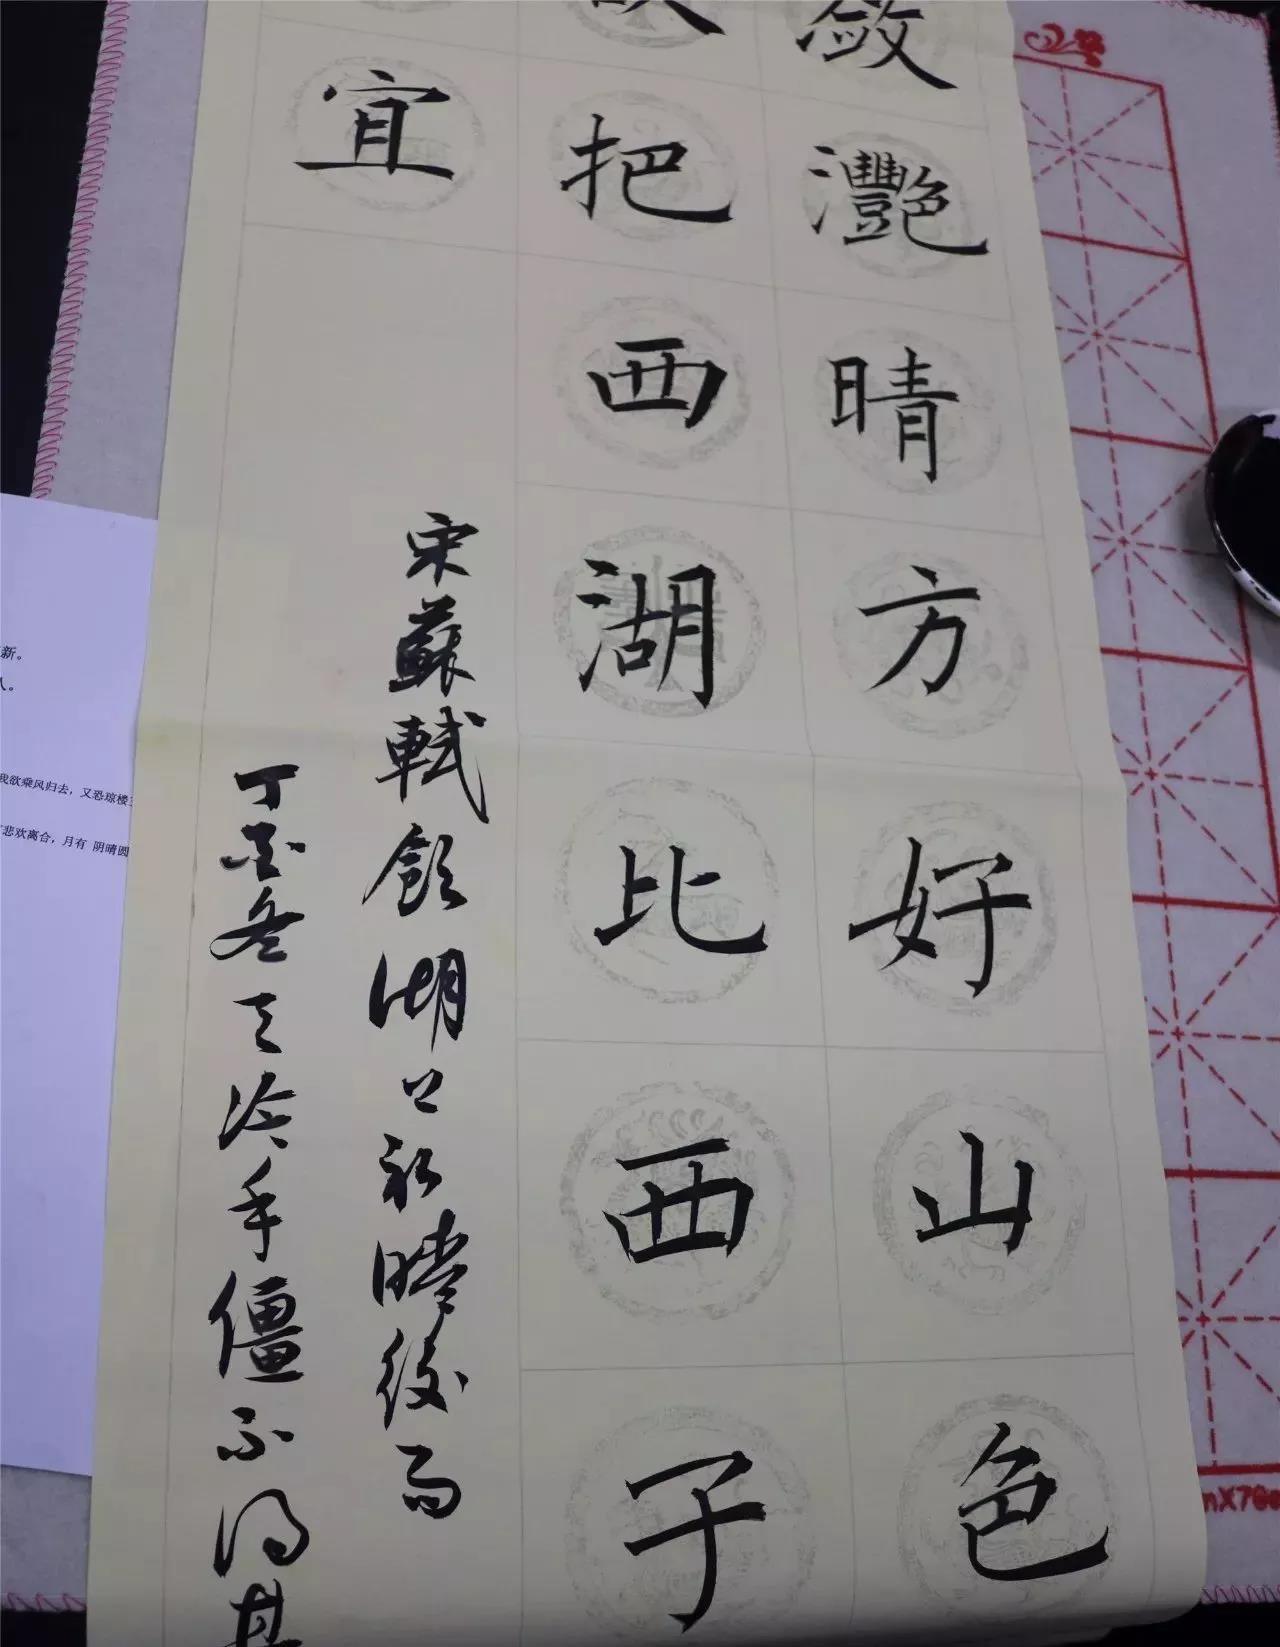 敛灩晴方好山色
把西湖比西子
宜
宋蘇軾飲湖上初晴後雨
丁酉冬天冷手僵不得其
新。
我欲乘风归去，又恐琼楼
悲欢离合，月有 阴晴圆